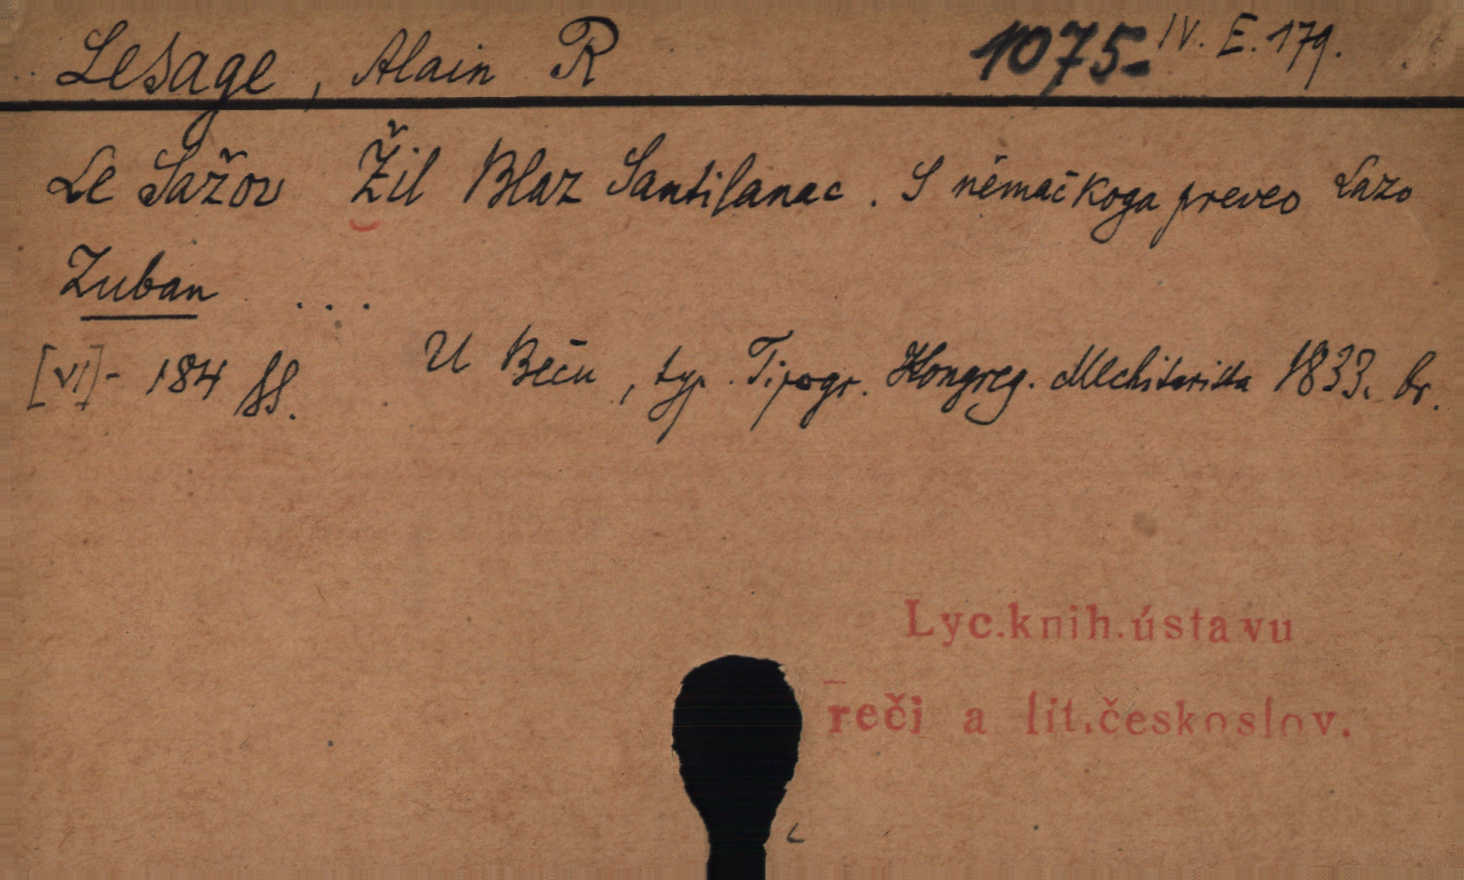 Lesage, Alain R 1075- IV. E. 179.
Le Sažov Žil Blaz Santilanac. S němačkoga preveo Lazo
Zuban ...
[VI]- 184 ss. U Beču, typ. Tipogr. Kongreg. Mechitarista 1833. br.
Lyc.knih.ústavu
reči a lit.českoslov.